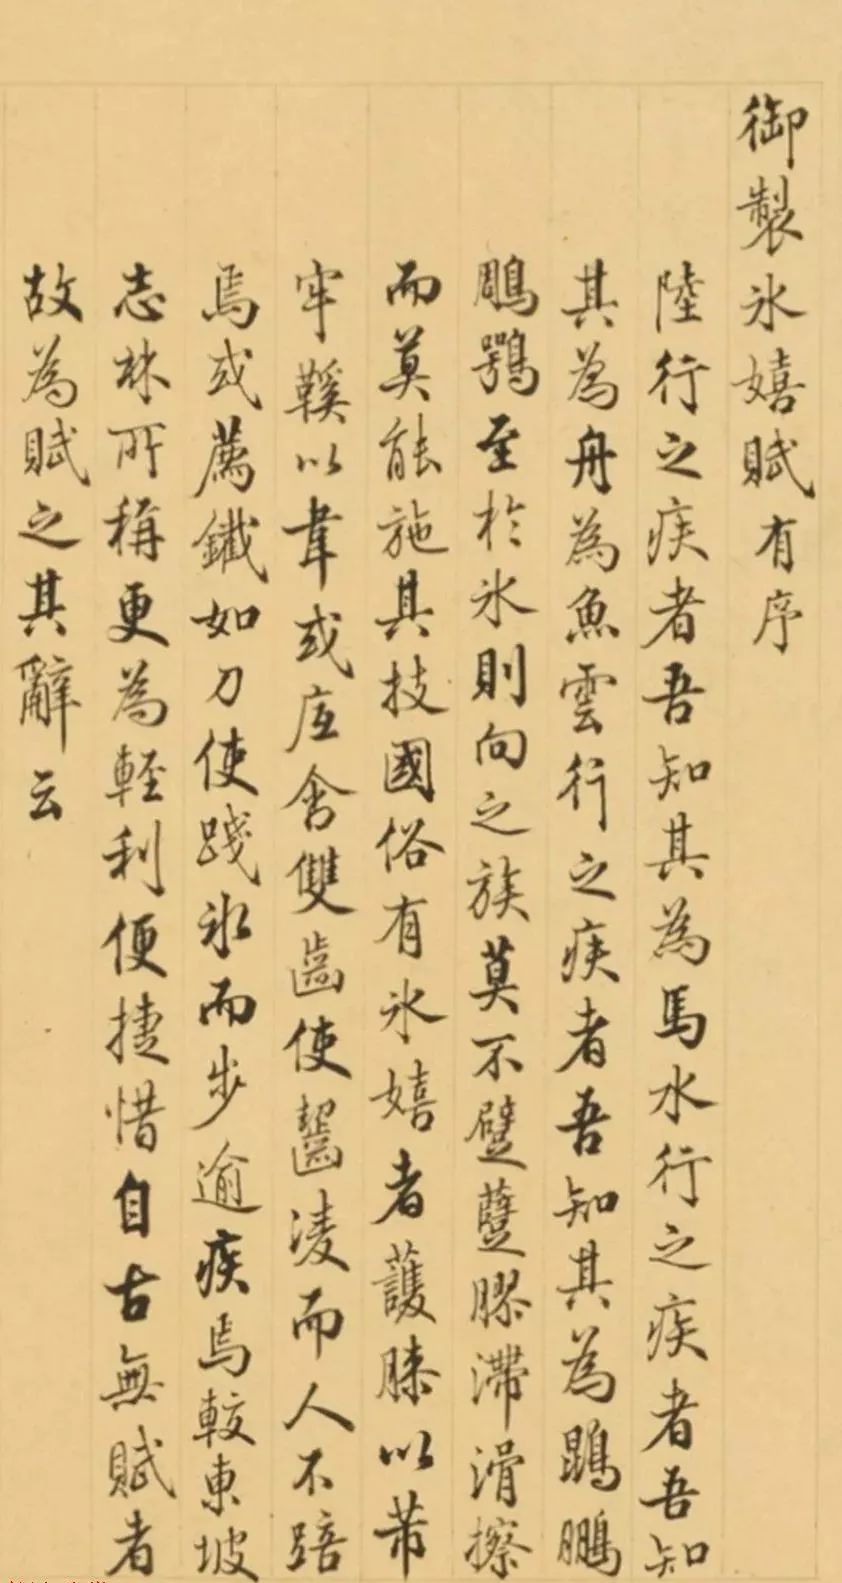 御製氷嬉賦有序
陸行之疾者吾知其為馬水行之疾者吾知
其為舟為魚雲行之疾者吾知其為鵾鵬
鵰鶚至於氷則向之族莫不躄躠膠滯滑擦
而莫能施其技國俗有氷嬉者護膝以芾
牢鞵以韋或底含雙齒使齧凌而人不踣
焉或薦鐵如刀使踐氷而步逾疾焉較東坡
志林所稱更為輕利便捷惜自古無賦者
故為賦之其辭云